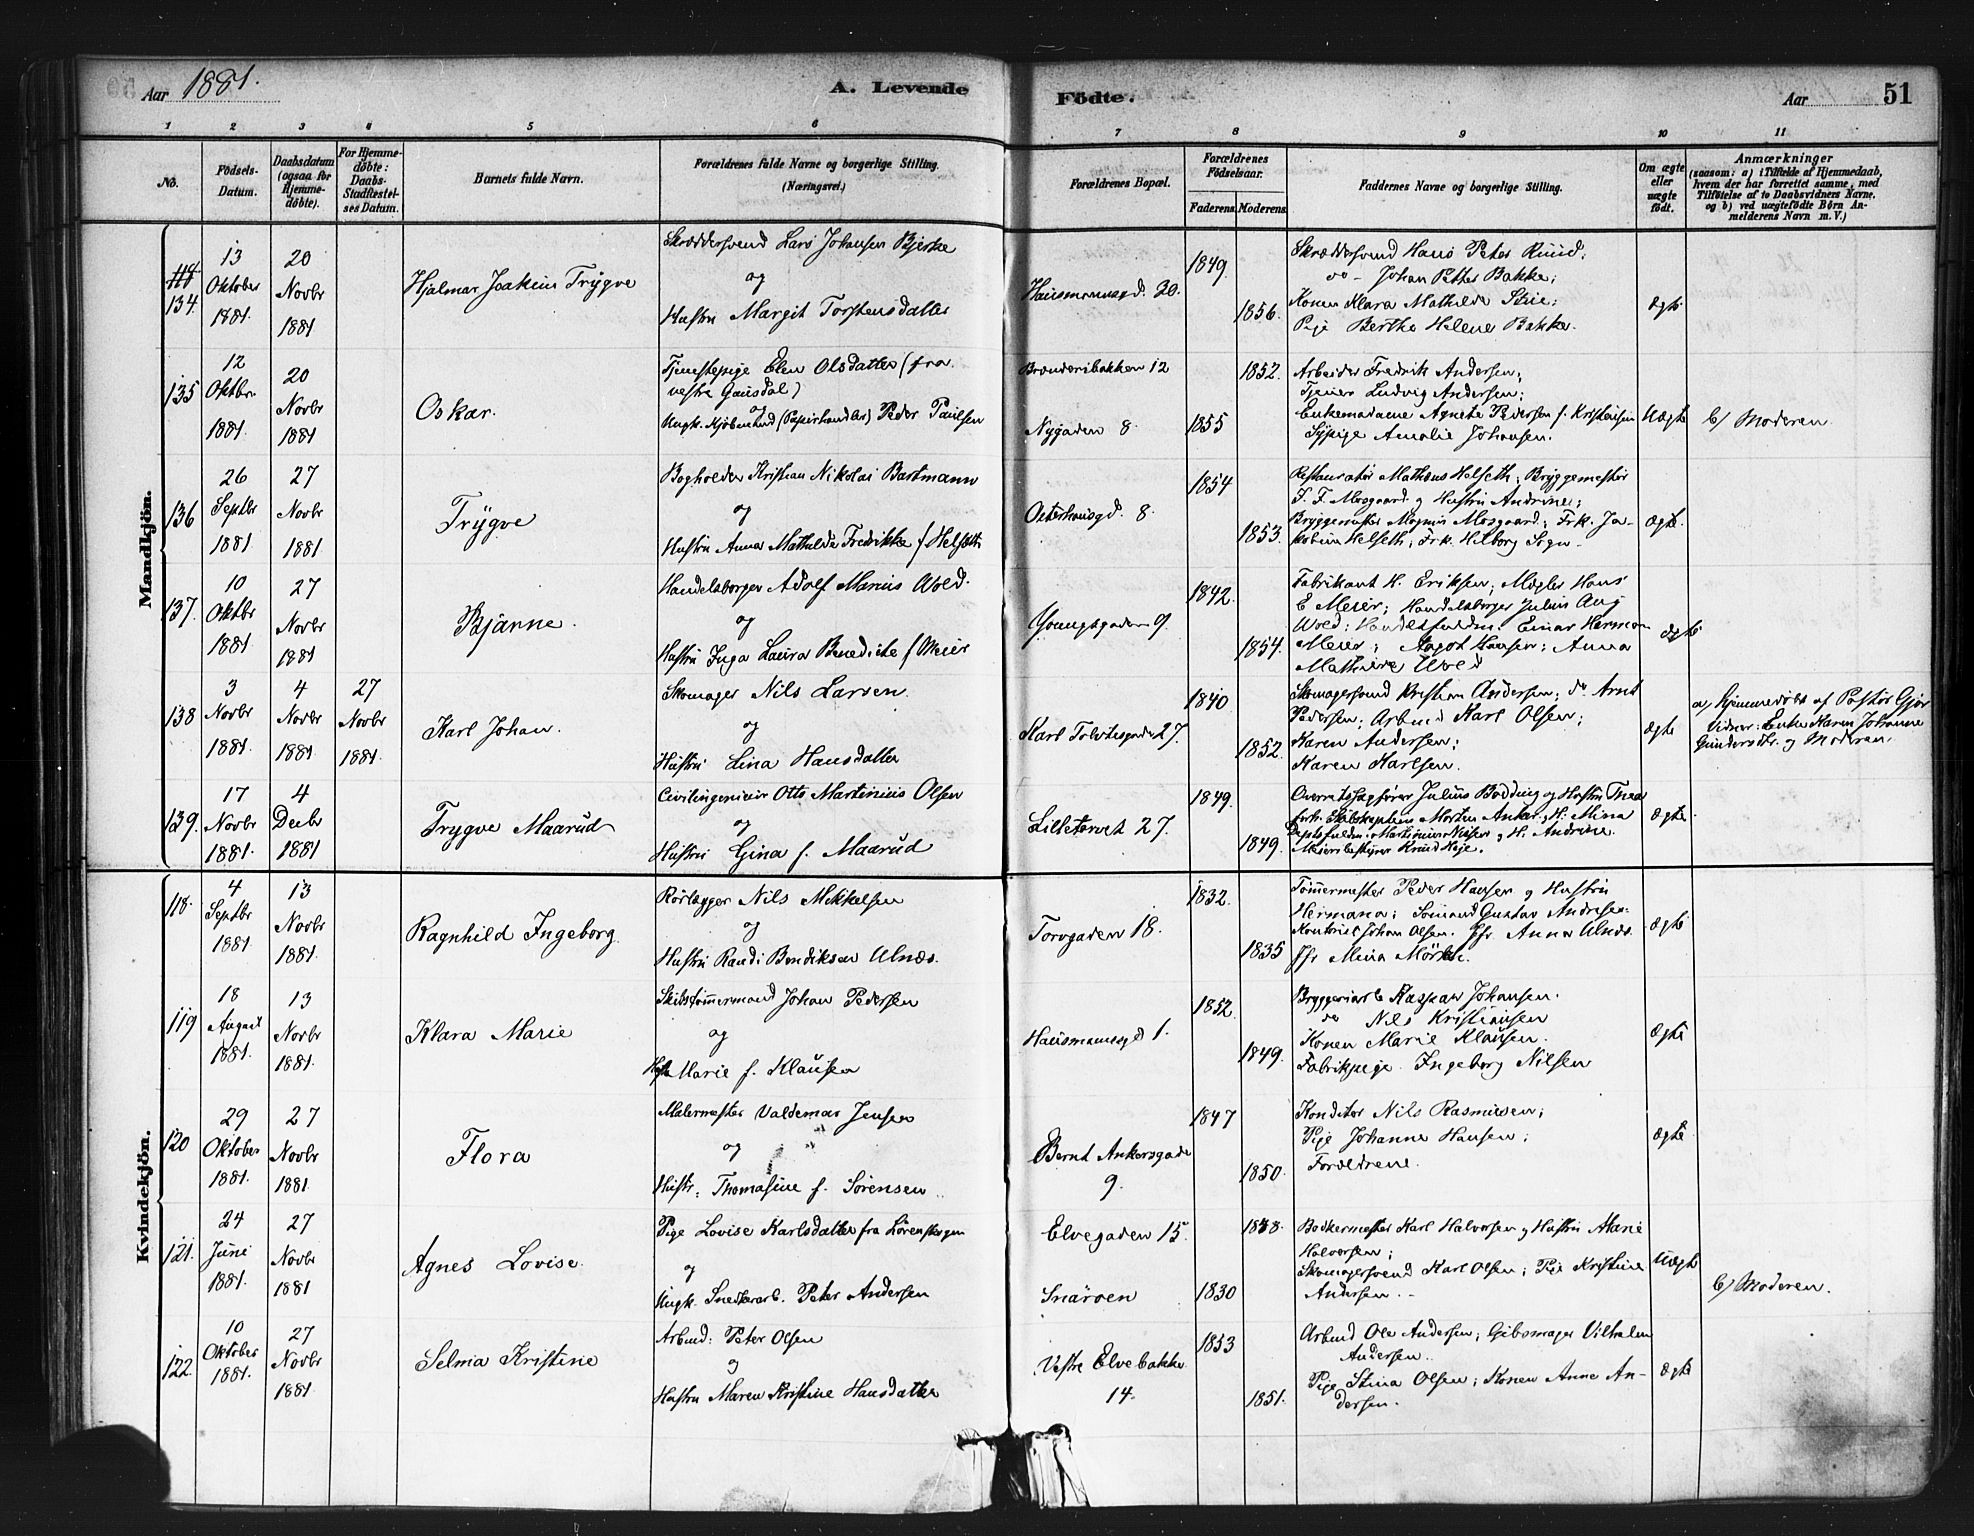 Aar 1881.
A. Levende
Födte.
Aar
51
1 2 3 4 5 6 7 8 9 10 11
No.
Födsels-Datum.
Daabsdatum (ogsaa for Hjemmedöbte).
For Hjemmedöbte: Daabs-Stadfæstelses Datum.
Barnets fulde Navn.
Forældrenes fulde Navne og borgerlige Stilling. (Næringsvei.)
Forældrenes Bopæl.
Forældrenes Födselsaar.
Faderens. Moderens.
Faddernes Navne og borgerlige Stilling.
Om ægte eller uægte födt.
Anmærkninger
(saasom: a) i Tilfælde af Hjemmedaab, hvem der har forrettet samme, med Tilföielse af to Daabsvidners Navne, og b) ved uægtefödte Börn Anmelderens Navn m. V.)
Mandkjön.
134.
13 Oktober 1881
20 Novbr 1881
Hjalmar Joakim Trygve
Skræddersvend Lars Johansen Bjerke
og
Hustru Margit Torstensdatter
Hausmannsgd. 20.
1849.
1856.
Skræddersvend Hans Peter Ruud;
do - Johan Petter Bakke;
Konen Klara Mathilde
Pige Berthe Helene Bakke.
ægte
135
12 Oktbr. 1881
20 Novbr 1881
Oskar.
Tjenestepige Elen Olsdatter (fra
vestre Gausdal)
og
Ungk. Kjöbmand (Papirhandler) Peder Paulsen
Brænderibakken 12
Nygaden 8.
1852.
1855
Arbeider Fredrik Andersen;
Tjener Ludvig Andersen;
Enkemadame Agnete Pedersen f. Kristensen
Sypige Amalie Johansen.
Uægte
b/ Moderen.
136
26 Septbr 1881
27 Novbr 1881
Trygve
Bogholder Kristian Nikolai Bartmann
og
Hustru Anna Mathilde Fredrikke f Helseth
Osterhausgd. 8.
1854
1853.
Restauratör Mathæus Helseth; Bryggemester
F. F. Mosgaard og Hustru Andrine;
Bryggemester Magnus Mosgaard; Frk. Ja-
kobine Helseth; Frk. Hilborg Sogn
ægte.
137.
10 Oktbr 1881
27 Novbr 1881
Bjarne.
Handelsborger Adolf Marius Wold.
og
Hustru Inga Laura Benedicte f Meier
Youngsgaden 9.
1842.
1854.
Fabrikant H. Eriksen; Mægler Hans
E Meier; Handelsborger Julius Aug
Wold; Handelsfuldm. Einar Herman
Meier; Aagot Hansen; Anna
Mathilde Wold
ægte
138
3 Novbr 1881
4 Novbr 1881
27 Novbr 1881.
Karl Johan.
Skomager Nils Larsen.
og
Hustru Lina Hansdatter
Karl Johansgaden 27.
1840
1852.
Skomagersvend Kristian Andersen; do Arnt
Pedersen; Arbmd Karl Olsen;
Karen Andersen;
Karen Karlsen.
ægte
a/ Hjemmedöbt af Pastor Gjör
Vidner: Enke Karen Johanne
Gundersdtr. og Moderen.
139.
17 Novbr 1881.
4 Decbr 1881
Trygve Maarud
Civilingeniör Otto Martinius Olsen
og
Hustru Gina f. Maarud
Lilletorvet 27.
1849.
1849.
Overretssagförer Julius Bödding og Hustru Thea
forh. Skibskaptein Morten Anker, H. Mina
Martinius Nilsen og H. Andrine.
Meieribestyrer Knud Hoje.
ægte.
Kvindekjön.
118.
4 Septbr 1881.
13 Novbr 1881.
Ragnhild Ingeborg.
Rörlægger Nils Mikkelsen
og
Hustru Randi Bendiksen Ulnæs.
Torvgaden 18.
1832.
1835
Tömmermester Peder Hansen og Hustru
Hermana; Sömand Gustav Andresen.
Kontorist Johan Olsen. Jfr Anna Ulnæs.
Jfr Mina Mörk.
ægte
119
18 August 1881.
13 Novbr 1881.
Klara Marie
Skibstömmermand Johan Pedersen
og
Marie f. Klausen
Hausmannsgd 1.
1852.
1849.
Bryggeriarb Kaspar Johansen.
do Nils Kristiansen
Konen Marie Klausen.
Fabrikpige. Ingeborg Nilsen
ægte
120
29 Oktober 1881.
27 Novbr 1881.
Flora
Malermester Valdemar Jensen
og
Hustr: Thomasine f. Sörensen
Bernt Ankersgade 9.
1847
1850.
Konditor Nils Rasmusen;
Pige Johanne Hansen;
Forældrene.
ægte
121.
24 Juni 1881.
27 Novbr 1881
Agnes Lovise.
Pige Lovise Karlsdatter fra Lörenskogen
og
Ungk. Snedkerarb. Peter Andersen
Elvegaden 15.
Snaröen
1838.
1830
Bødkermester Karl Halvorsen og Hustru Marie
Halvorsen;
Skomagersvend Karl Olsen; Pige Kristine
Andersen.
Uægte
b/ Moderen.
122.
10 Oktober 1881.
27 Novbr 1881
Selma Kristine
Arbmd: Peter Olsen
og
Hustru Maren Kristine Hansdatter
Vestre Elvebakke 14.
1853
1851.
Arbmd Ole Andersen; Gibsmager Vilhelm
Andersen.
Pige Stina Olsen; Konen Anne An-
dersen.
ægte